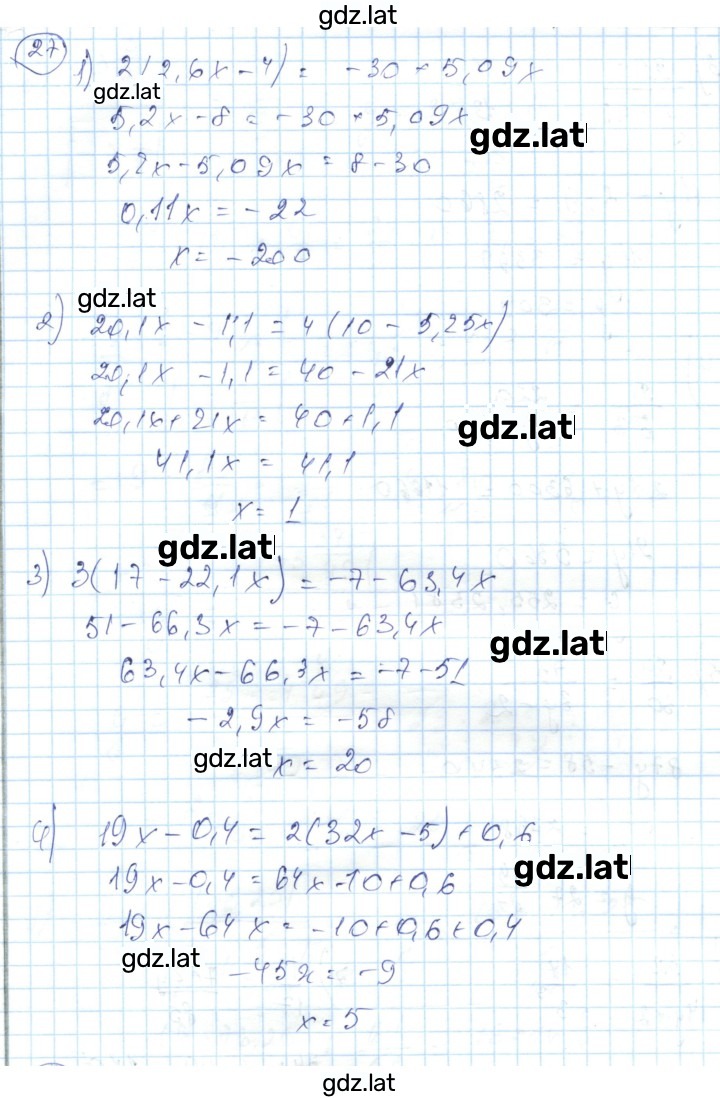 gdz.lat
27
1) 2(2,6x-4) = -30+5,09x
gdz.lat
5,2x-8 = -30+5,09x
gdz.lat
5,2x-5,09x = 8-30
0,11x = -22
x = -200
gdz.lat
2) 20,1x - 1,1 = 4(10 - 5,25x)
20,1x - 1,1 = 40 - 21x
20,1x+21x = 40+1,1
gdz.lat
41,1x = 41,1
x = 1
gdz.lat
3) 3(17 - 22,1x) = -7 - 63,4x
51 - 66,3x = -7 - 63,4x
gdz.lat
63,4x - 66,3x = -7-51
-2,9x = -58
gdz.lat
x = 20
4) 19x - 0,4 = 2(32x - 5) + 0,6
gdz.lat
19x - 0,4 = 64x - 10 + 0,6
19x - 64x = -10 + 0,6 + 0,4
gdz.lat
-45x = -9
x = 5
gdz.lat